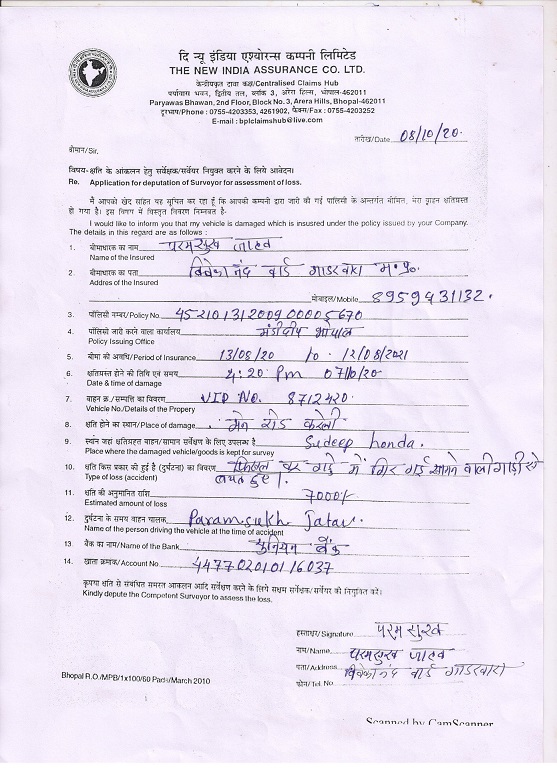 दि न्यू इंडिया एश्योरन्स कम्पनी लिमिटेड
THE NEW INDIA ASSURANCE CO. LTD.
केन्द्रीयकृत दावा कक्ष/Centralised Claims Hub
पर्यावास भवन, द्वितीय तल, ब्लॉक 3, अरेरा हिल्स, भोपाल-462011
Paryawas Bhawan, 2nd Floor, Block No. 3, Arera Hills, Bhopal-462011
दूरभाष/Phone : 0755-4203353, 4261902, फैक्स/Fax : 0755-4203252
E-mail : bplclaimshub@live.com
तारीख/Date 08/10/20.
श्रीमान/Sir.
विषय-क्षति के आंकलन हेतु सर्वेक्षक/सर्वेयर नियुक्त करने के लिये आवेदन।
Re. Application for deputation of Surveyor for assessment of loss.
मैं आपको खेद सहित यह सूचित कर रहा हूँ कि आपकी कम्पनी द्वारा जारी की गई पालिसी के अन्तर्गत बीमित, मेरा वाहन क्षतिग्रस्त
हो गया है। इस विषय में विस्तृत विवरण निम्नवत है-
I would like to inform you that my vehicle is damaged which is insusred under the policy issued by your Company.
The details in this regard are as follows :
1. बीमाधारक का नाम परमसुख जाटव
Name of the Insured
2. बीमाधारक का पता विवेकानंद वार्ड गाडरवारा म.प्र.
Addres of the Insured
मोबाईल/Mobile 8959431132.
3. पॉलिसी नम्बर/Policy No. 45210131200900005670
4. पॉलिसी जारी करने वाला कार्यालय मंडीदीप भोपाल
Policy Issuing Office
5. बीमा की अवधि/Period of Insurance 13/08/20 to 12/08/2021
6. क्षतिग्रस्त होने की तिथि एवं समय 4:20 Pm 07/10/20
Date & time of damage
7. वाहन क्र./सम्पत्ति का विवरण VIP No. 8712420
Vehicle No./Details of the Propery
8. क्षति होने का स्थान/Place of damage मेन रोड करेली
9. स्थान जहां क्षतिग्रस्त वाहन/सामान सर्वेक्षण के लिए उपलब्ध है Sudeep honda.
Place where the damaged vehicle/goods is kept for survey
10. क्षति किस प्रकार की हुई है (दुर्घटना) का विवरण में गिर गई सामने वाली गाड़ी से
Type of loss (accident) बचते हुए।
11. क्षति की अनुमानित राशि 7000/-
Estimated amount of loss
12. दुर्घटना के समय वाहन चालक Paramsukh Jatav.
Name of the person driving the vehicle at the time of accident
13. बैंक का नाम/Name of the Bank यूनियन बैंक
14. खाता क्रमांक/Account No. 447702010116037
कृपया क्षति से संबंधित समस्त आकलन आदि सर्वेक्षण करने के लिये सक्षम सर्वेक्षक/सर्वेयर की नियुक्ति करें।
Kindly depute the Competent Surveyor to assess the loss.
हस्ताक्षर/Signature परम सुख
नाम/Name परमसुख जाटव
पता/Address विवेकानंद वार्ड गाडरवारा
फोन/Tel. No.
Bhopal R.O./MPB/1x100/60 Pads/March 2010
Scanned by CamScanner